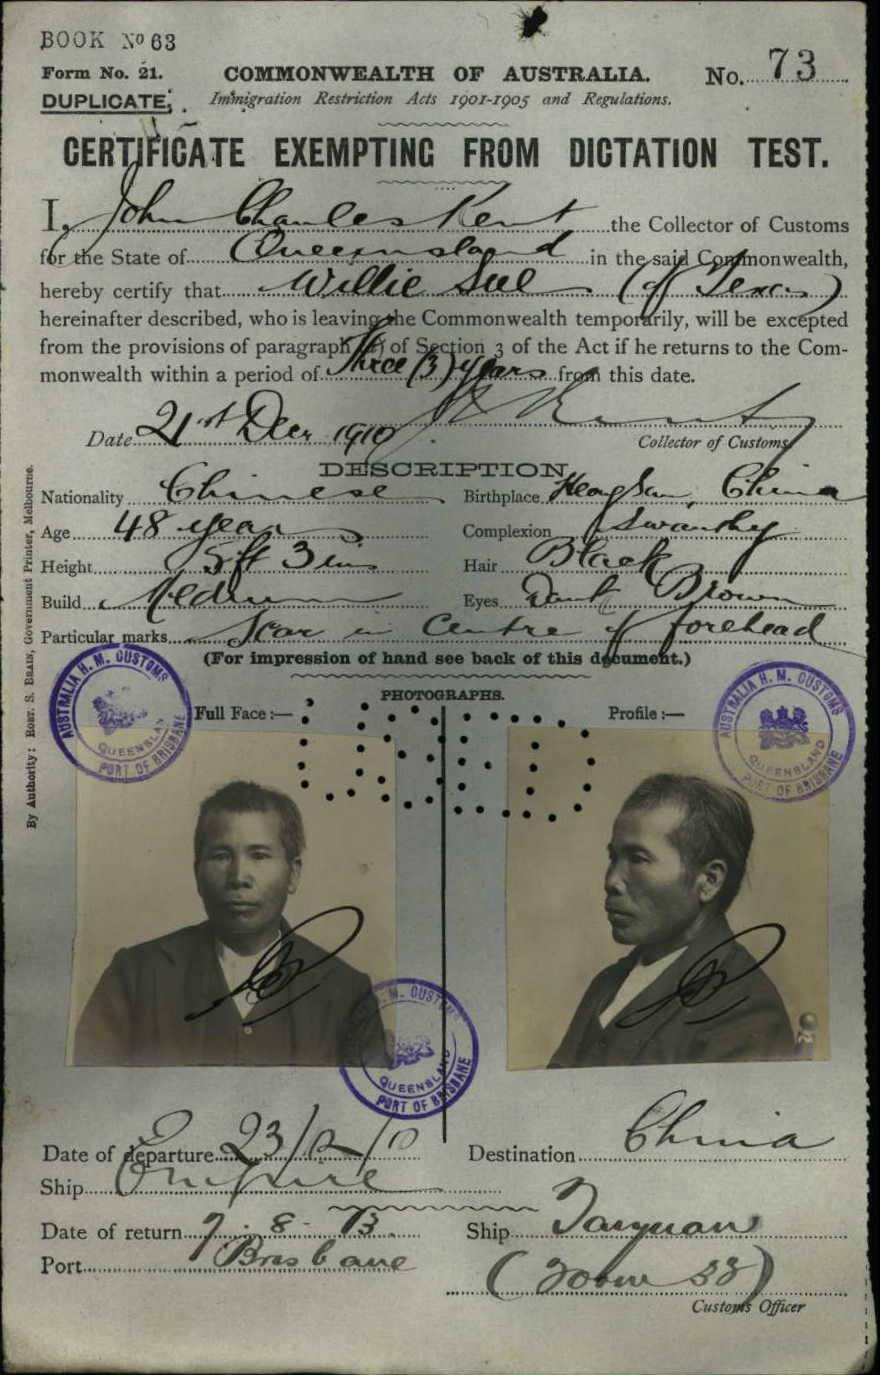 BOOK No 63
Form No. 21.
COMMONWEALTH OF AUSTRALIA.
No. 73
DUPLICATE.
Immigration Restriction Acts 1901-1905 and Regulations.
CERTIFICATE EXEMPTING FROM DICTATION TEST.
I, John Charles Kent the Collector of Customs
for the State of Queensland in the said Commonwealth,
hereby certify that Willie Sue (of Texas)
hereinafter described, who is leaving the Commonwealth temporarily, will be excepted
from the provisions of paragraph (a) of Section 3 of the Act if he returns to the Com-
monwealth within a period of Three (3) years from this date.
Date 21st Decr 1910
Collector of Customs
DESCRIPTION
Nationality Chinese
Birthplace China
Age 48 years
Complexion Swarthy
Height 5ft 3 ins
Hair Black
Build Medium
Eyes Dark Brown
Particular marks Scar in Centre of forehead
(For impression of hand see back of this document.)
PHOTOGRAPHS.
Full Face :—
Profile :—
AUSTRALIA H. M. CUSTOMS
QUEENSLAND
PORT OF BRISBANE
AUSTRALIA H. M. CUSTOMS
QUEENSLAND
PORT OF BRISBANE
H. M. CUSTOMS
QUEENSLAND
PORT OF BRISBANE
Date of departure 23/12/10
Destination China
Ship Empire
Date of return 7-8-13
Ship Taiyuan
Port Brisbane
Customs Officer
By Authority: ROBT. S. BRAIN, Government Printer, Melbourne.